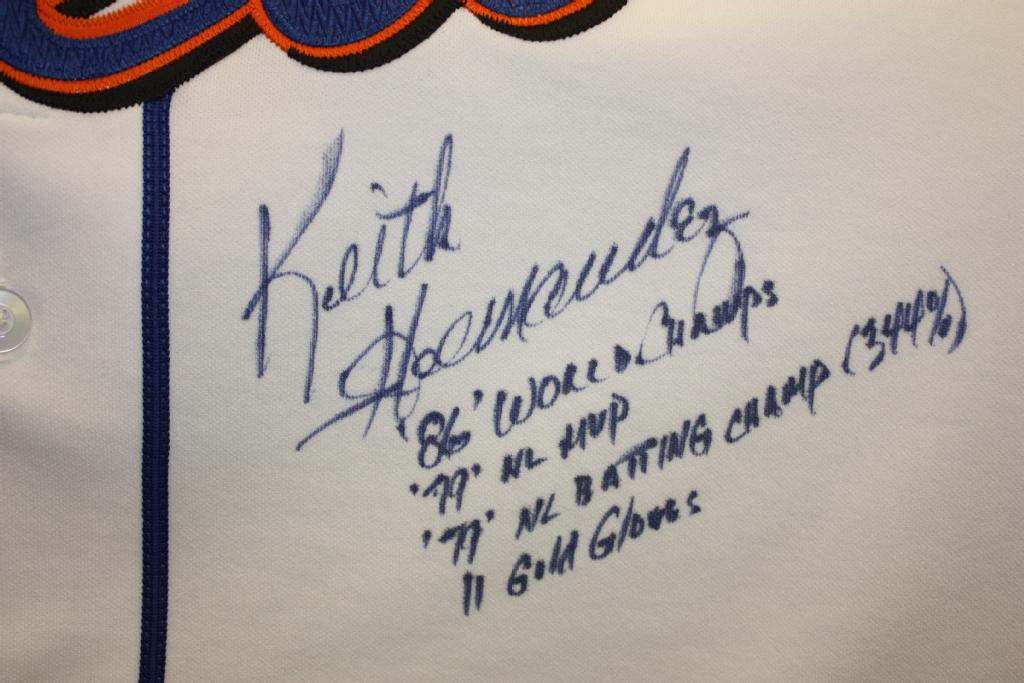 Keith
Hernandez
'86' WORLD CHAMPS
'79' NL MVP
'79' NL BATTING CHAMP (344%)
11 Gold Gloves